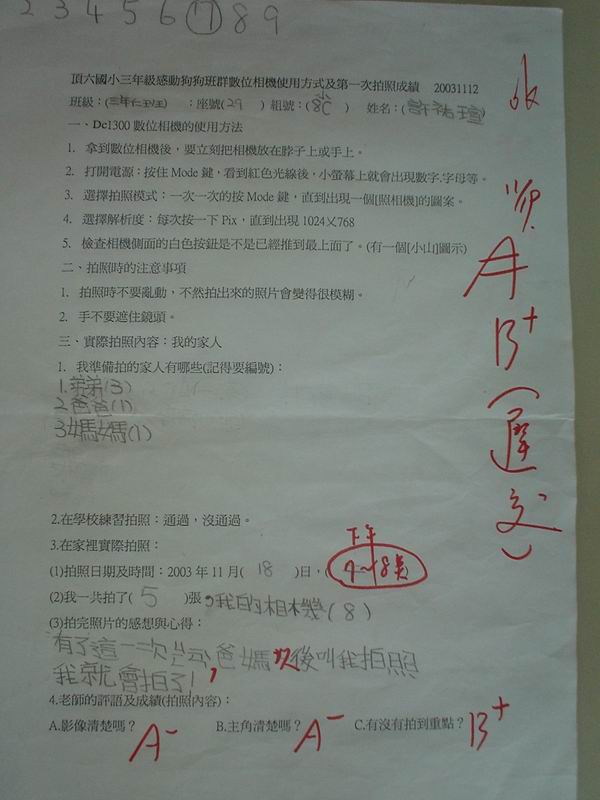 2 3 4 5 6 17 8 9
頂六國小三年級感動狗狗班群數位相機使用方式及第一次拍照成績 20031112
班級：(三年仁班) ：座號(29 ) 組號：(8C小 ) 姓名：(許祐瑄)
ok
一、Dc1300 數位相機的使用方法
1. 拿到數位相機後，要立刻把相機放在脖子上或手上。
2. 打開電源：按住 Mode 鍵，看到紅色光線後，小螢幕上就會出現數字.字母等。
3. 選擇拍照模式：一次一次的按 Mode 鍵，直到出現一個[照相機]的圖案。
4. 選擇解析度：每次按一下 Pix，直到出現 1024乂768
5. 檢查相機側面的白色按鈕是不是已經推到最上面了。(有一個[小山]圖示)
A
二、拍照時的注意事項
1. 拍照時不要亂動，不然拍出來的照片會變得很模糊。
2. 手不要遮住鏡頭。
B+
三、實際拍照內容：我的家人
1. 我準備拍的家人有哪些(記得要編號)：
1.弟弟(3)
2爸爸(1)
3媽媽(1)
(遲交)
2.在學校練習拍照：通過，沒通過。
3.在家裡實際拍照：
下午
(1)拍照日期及時間：2003 年 11 月( 18 )日，(
(2)我一共拍了( 5 )張，我的相機(8)
(3)拍完照片的感想與心得：
有了這一次 爸媽以後叫我拍照
我就會拍了!
4.老師的評語及成績(拍照內容)：
A.影像清楚嗎？ A- B.主角清楚嗎？ A- C.有沒有拍到重點？ B+